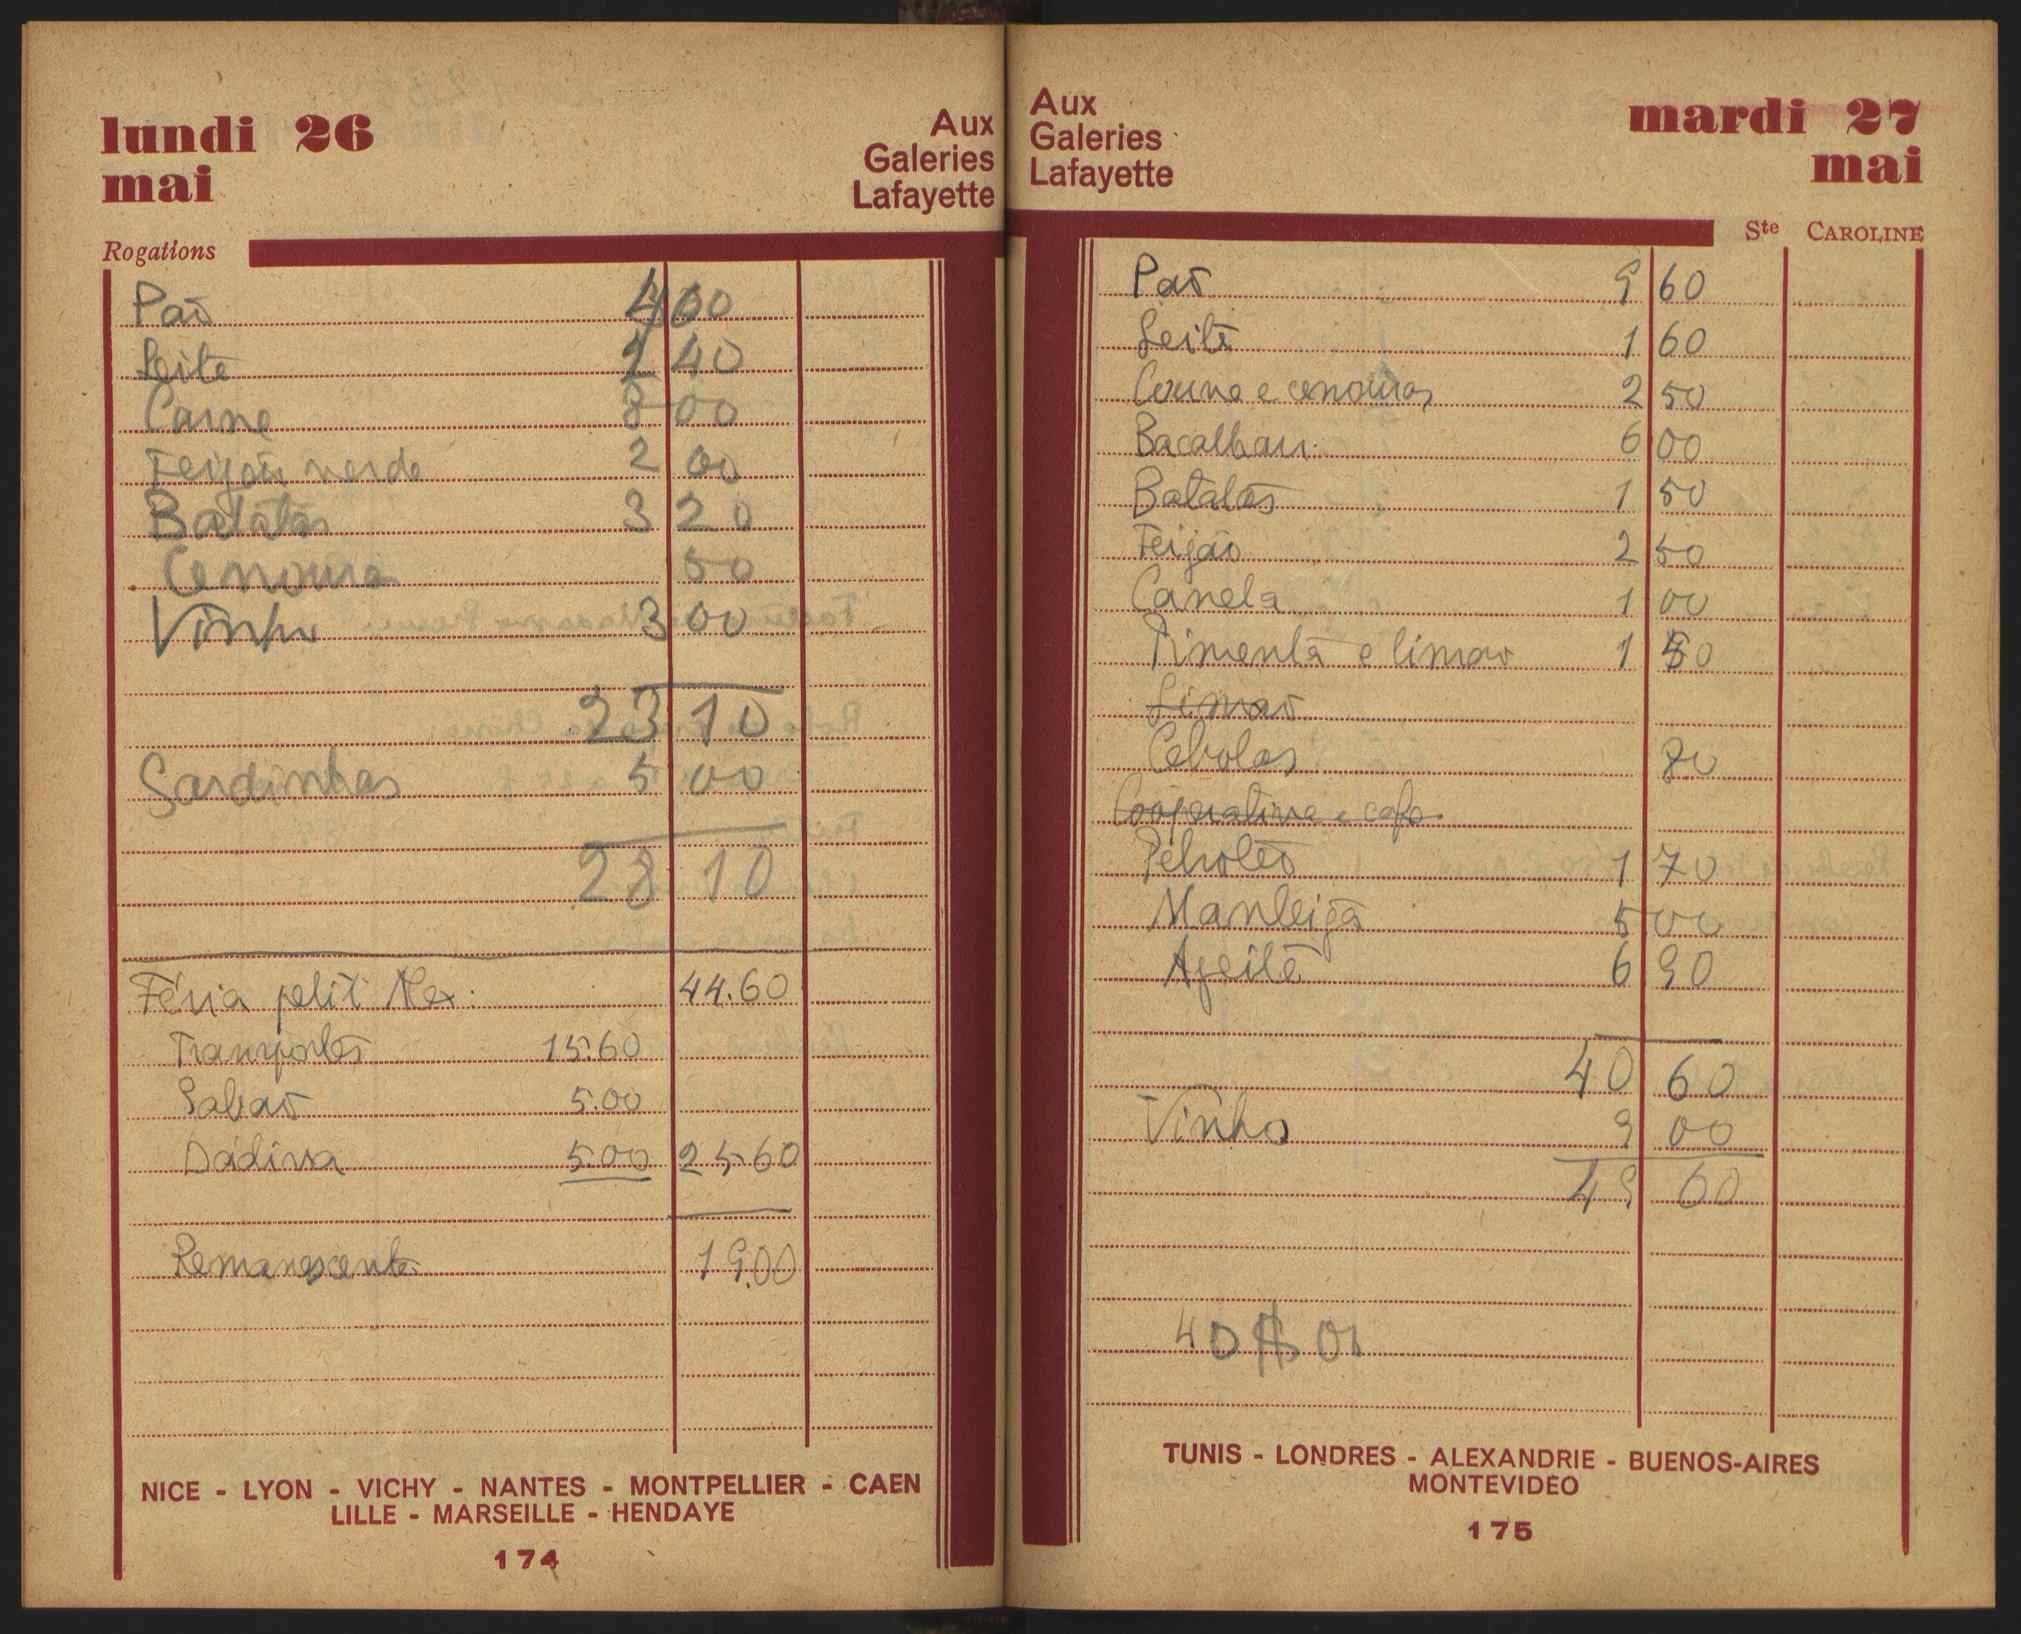 lundi 26
mai
Aux
Galeries
Lafayette
Rogations
Pão 4 60
Leite 1 40
Carne 8 00
Feijão verde 2 00
Batatas 3 20
Cenoura 50
Vinho 3 00
23 10
Sardinhas 5 00
28 10
Féria petit 44.60
Transportes 15.60
Sabão 5.00
Dádiva 5.00 25.60
Remanescente 19.00
NICE - LYON - VICHY - NANTES - MONTPELLIER - CAEN
LILLE - MARSEILLE - HENDAYE
174
Aux
Galeries
Lafayette
mardi 27
mai
Ste CAROLINE
Pão 9 60
Leite 1 60
Couve e cenouras 2 50
Bacalhau 6 00
Batatas 1 50
Feijão 2 50
Canela 1 00
Pimenta e limão 1 50
Limão
Cebolas 80
Cooperativa e café
Petroleo 1 70
Manteiga 5 00
Azeite 6 90
40 60
Vinho 9 00
49 60
40$
TUNIS - LONDRES - ALEXANDRIE - BUENOS-AIRES
MONTEVIDEO
175